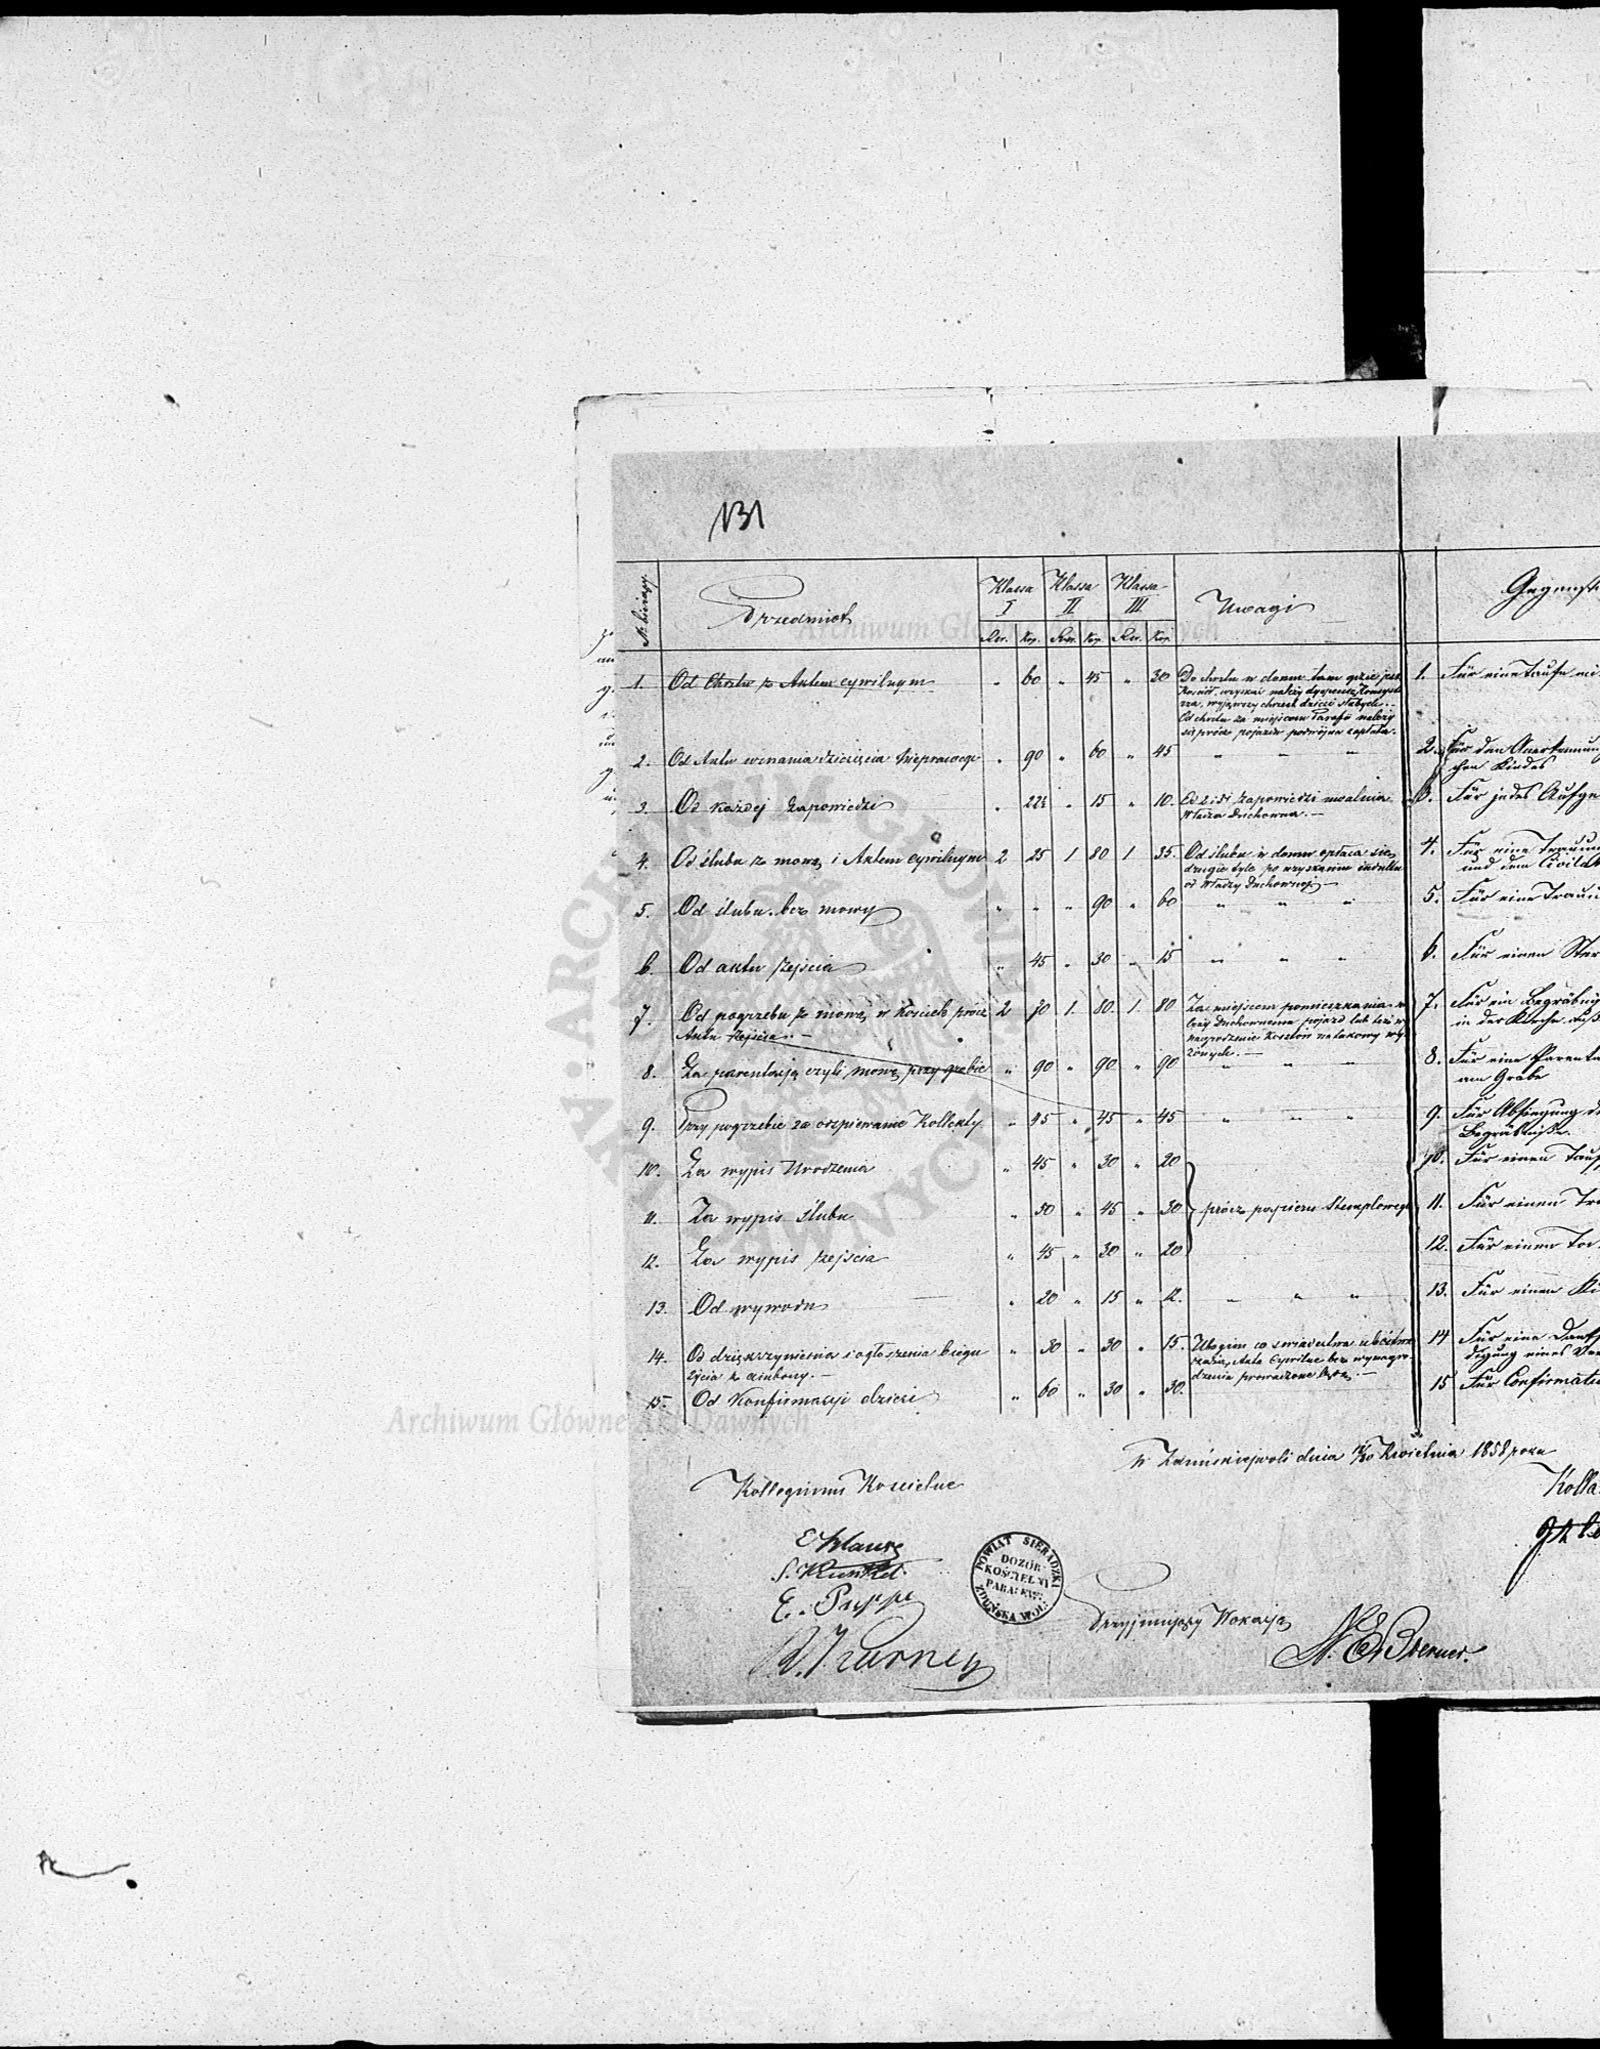 131
N bieżący. Przedmiot Klassa I Klassa II. Klassa III. Uwagi
Rsr. Kop. Rsr. Kop. Rsr. Kop.
1. Od Chrztu z Aktem cywilnym „ 60 „ 45 „ 30 Do chrztu w domu tam gdzie jest
Kościół, uzyskać należy dyspensę Konsysto
rza, wyjąwszy chrzest dzieci słabych.
Od chrztu za miejscem Parafii należy
się prócz pojazdu podwójna zapłata.
2. Od Aktu uznania dziecięcia nieprawego „ 90 „ 60 „ 45 „ „ „
3. Od każdej Zapowiedzi „ 22½ „ 15 „ 10. Od 2 i 3 zapowiedzi uwalnia
Władza Duchowna.
4. Od ślubu z mową i Aktem cywilnym 2 25 1 80 1 35. Od ślubu w domu opłaca się
drugie tyle po uzyskaniu indultu
od Władzy Duchownej
5. Od ślubu bez mowy „ „ „ 90 „ 60 „ „ „
6. Od aktu Zejścia „ 45 „ 30 „ 15 „ „ „
7. Od pogrzebu z mową w Kościele prócz 2 70 1. 80. 1. 80 Za miejscem pomieszkania na
Aktu Zejścia. leży Duchownemu pojazd lub też wy
nagrodzenie kosztów na takowy wyło
żonych.
8. Za parentacją czyli mową przy grobie „ 90 „ 90 „ 90 „ „ „
9. Przy pogrzebie za odśpiewanie Kollekty „ 45 „ 45 „ 45 „ „ „
10. Za wypis Urodzenia „ 45 „ 30 „ 20
11. Za wypis Ślubu „ 50 „ 45 „ 30 prócz papieru Stemplowego
12. Za wypis Zejścia „ 45 „ 30 „ 20
13. Od wywodu „ 20 „ 15 „ 12. „ „ „
14. Od dziękczynienia i ogłoszenia biegu „ 50 „ 30 „ 15. Ubogim co świadectwa ubóstwa
życia z ambony. okażą, Akta Cywilne bez wynagro
dzenia prowadzone będą.
15. Od Konfirmacyi dzieci „ 60 „ 30 „ 30.
1. Für eine Taufe mi
2. Für den Anerkennung
chen Kindes
3. Für jedes Aufge
4. Für eine Trauung
und dem Civilak
5. Für eine Trauu
6. Für einen Ster
7. Für ein Begräbniß
in der Kirche
8. Für eine Parenta
am Grabe
9. Für Absingung d
Begräbniße.
10. Für einen Tauf
11. Für einen Tr
12. Für einen To
13. Für einen Ki
14 Für eine Dank
digung eines
15 Für Confirmati
w Zduńskiejwoli dnia 18/30 Kwietnia 1858 roku
Kollegium Kościelne
Kolla
E. Pappe
POWIAT SIERADZKI
DOZÓR
KOŚCIELNY
PARAF. EW.
ZDUŃSKA WOLA
Przyjmujący Wokacją
N. E. Brenner.
Archiwum Główne Akt Dawnych